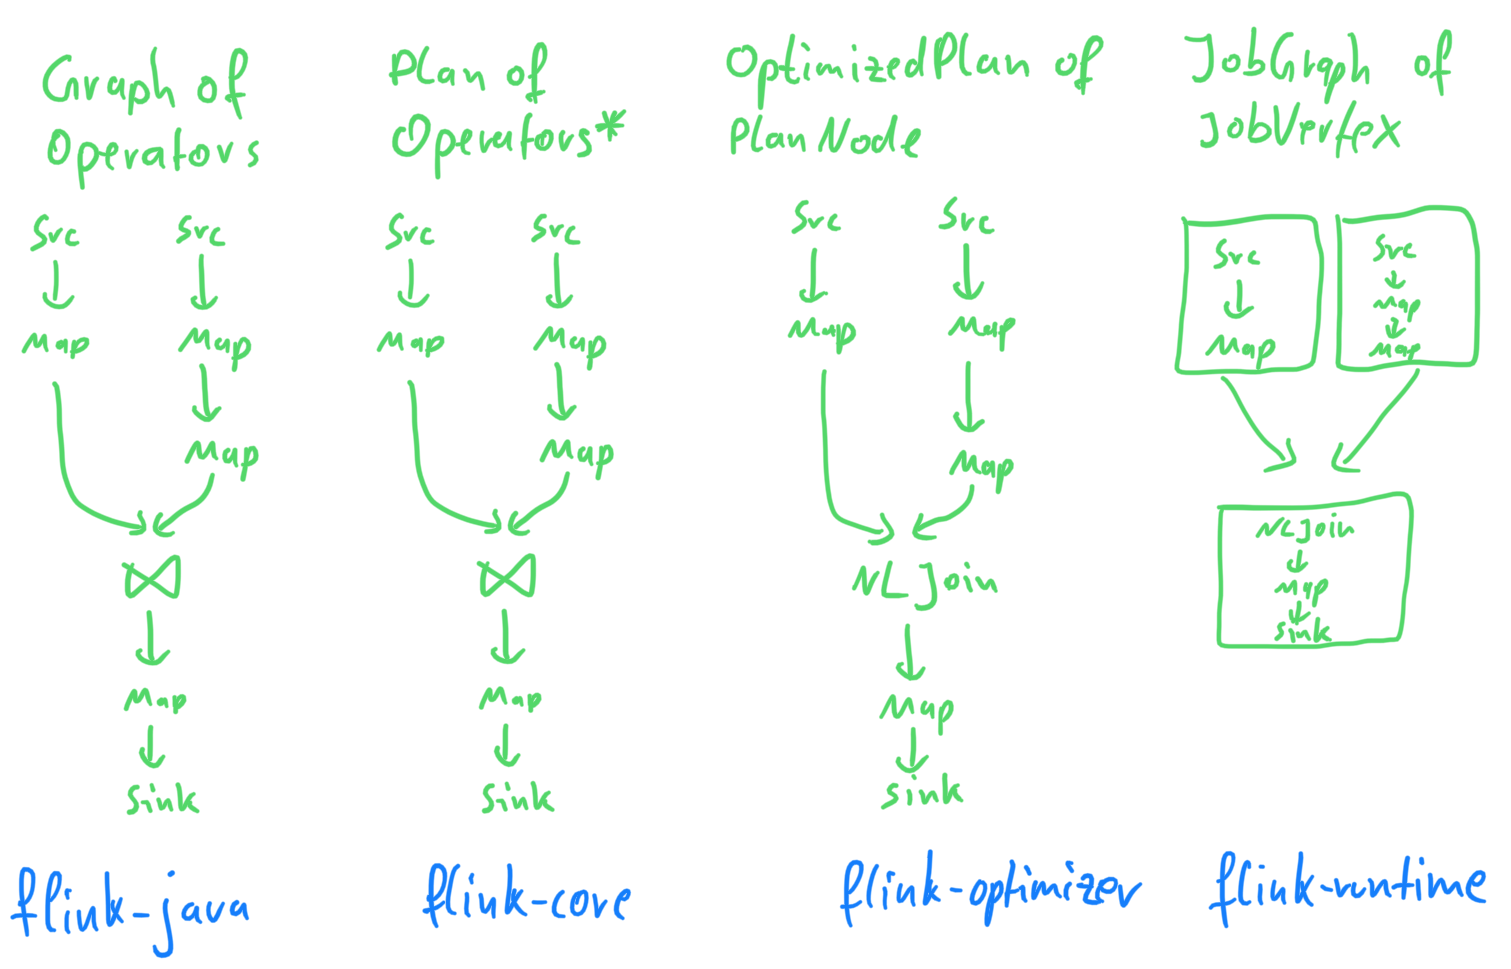 Graph of
Operators
Src Src
Map Map
Map
Map
Sink
flink-java
Plan of
Operators*
Src Src
Map Map
Map
Map
Sink
flink-core
OptimizedPlan of
PlanNode
Src Src
Map Map
Map
NL Join
Map
Sink
flink-optimizer
JobGraph of
JobVertex
Src
Map
Src
Map
Map
NLJoin
Map
Sink
flink-runtime